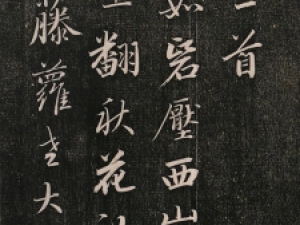 首
如壓西山
翻秋花
藤蘿老大